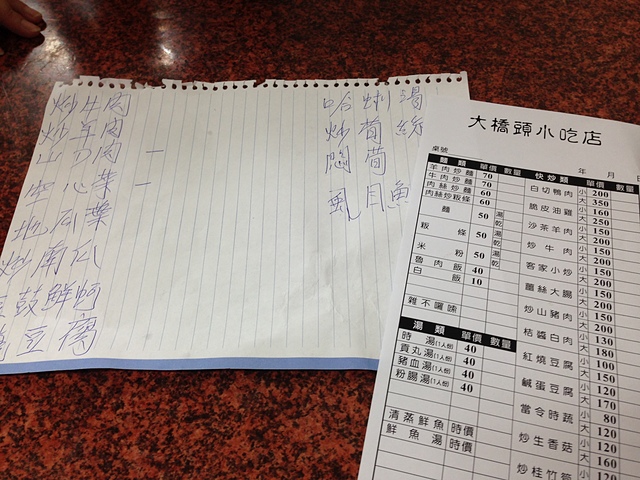 炒牛肉
炒羊肉
山刀肉 一
空心菜 一
地瓜葉
炒南瓜
豆鼓鮮蚵
豆腐
哈蜊湯
炒筍絲
悶筍
風目魚
大橋頭小吃店
桌號 年 月 日
麵類 單價 數量
羊肉炒麵 70
牛肉炒麵 70
肉絲炒麵 60
肉絲炒粄條 60
麵 50 湯 乾
粄條 50 湯 乾
米粉 50 湯 乾
魯肉飯 40
白飯 10
雜不囉嗦
湯類 單價 數量
時湯(1人份) 40
貢丸湯(1人份) 40
豬血湯(1人份) 40
粉腸湯(1人份) 40
清蒸鮮魚 時價
鮮魚湯 時價
快炒類 單價 數量
白切鴨肉 小 200 大 350
脆皮油雞 小 160 大 250
沙茶羊肉 小 150 大 200
炒牛肉 小 150 大 200
客家小炒 小 150 大 200
薑絲大腸 小 150 大 200
炒山豬肉 小 150 大 200
桔醬白肉 小 130 大 180
紅燒豆腐 小 100 大 150
鹹蛋豆腐 小 120 大 170
當令時蔬 小 80 大 120
炒生香菇 小 120 大 160
炒桂竹筍 小 120